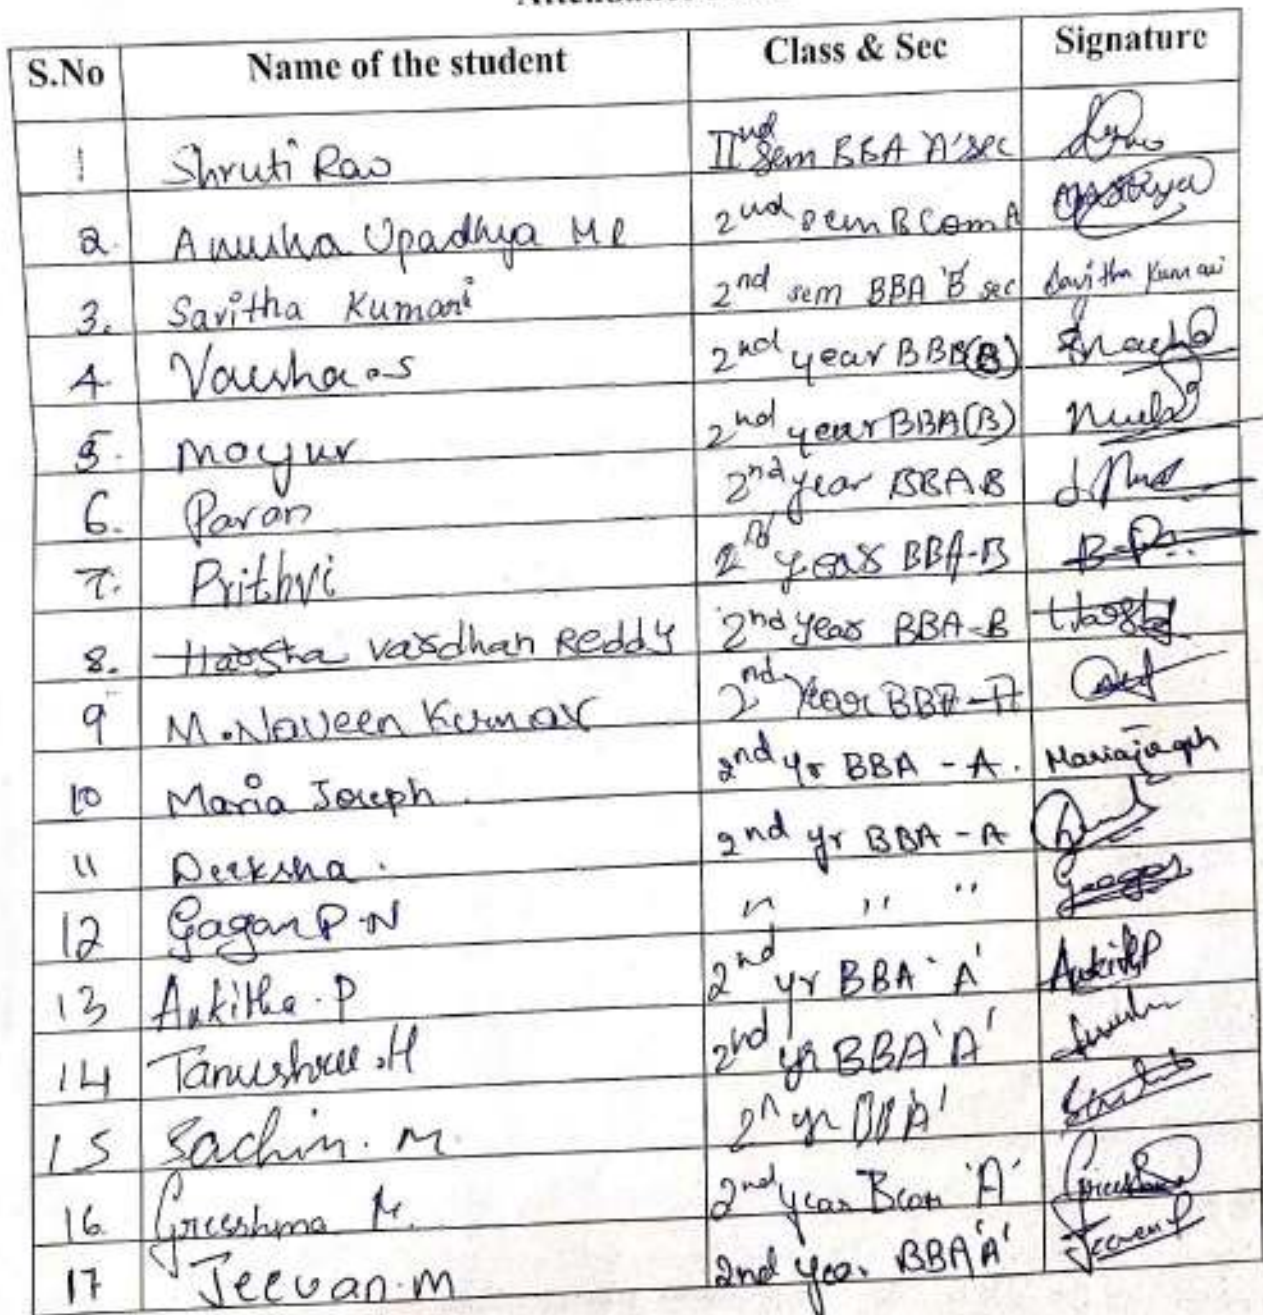 S.No Name of the student Class & Sec Signature
1 Shruti Rao IInd Sem BBA 'A' sec
2. Anusha Upadhya M R 2nd sem B Com A
3. Savitha Kumari 2nd sem BBA 'B' sec Savitha Kumari
4. Varsha.S 2nd year BBA(B)
5. Mayur 2nd year BBA(B)
6. Pavan 2nd year BBA B
7. Prithvi 2nd year BBA-B B-Pr..
8. Harsha vardhan Reddy 2nd year BBA-B Harsha
9 M.Naveen Kumar 2nd Year BBA-A
10 Maria Joseph. 2nd yr BBA - A. Mariajoseph
11 Deeksha. 2nd yr BBA - A
12 Gagan P.N " " " Gagan
13 Ankitha.P 2nd yr BBA 'A' AnkithP
14 Tanushree.H 2nd yr BBA 'A'
15 Sachin. M. 2n yr BBA'
16. Greeshma M. 2nd year Bcom 'A' Greeshma
17 Jeevan.M 2nd year BBA'A'